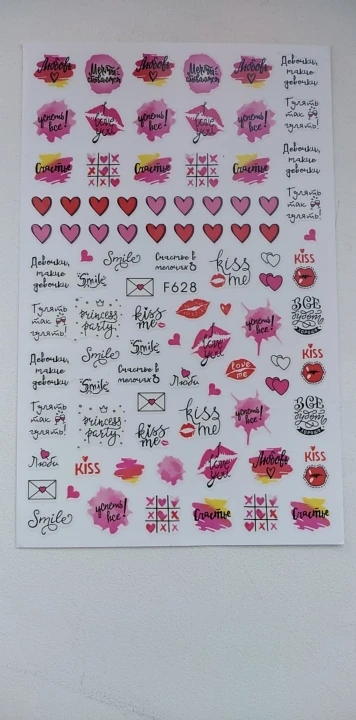 Любовь
Мечты
сбываются
Любовь
Мечты
сбываются
Любовь
Девочки,
такие
девочки
успеть
все!
love
you
успеть
все!
love
you
успеть
все!
Гулять
так
гулять!
Счастье
Счастье
Счастье
Девочки,
такие
девочки
Гулять
так
гулять!
Девочки,
такие
девочки
Smile
Счастье в
мелочах
kiss
me
KISS
Smile
F628
Гулять
так
гулять!
princess
party
kiss
me
love
you
успеть
все!
ВСЕ
будет
хорошо
Smile
Девочки,
такие
девочки
Smile
Smile
Счастье в
мелочах
Люби
love
me
KISS
Гулять
так
гулять!
princess
party
kiss
me
kiss
me
успеть
все!
ВСЕ
будет
хорошо
Люби
KISS
love
you
Любовь
KISS
Smile
успеть
все!
Счастье
Счастье